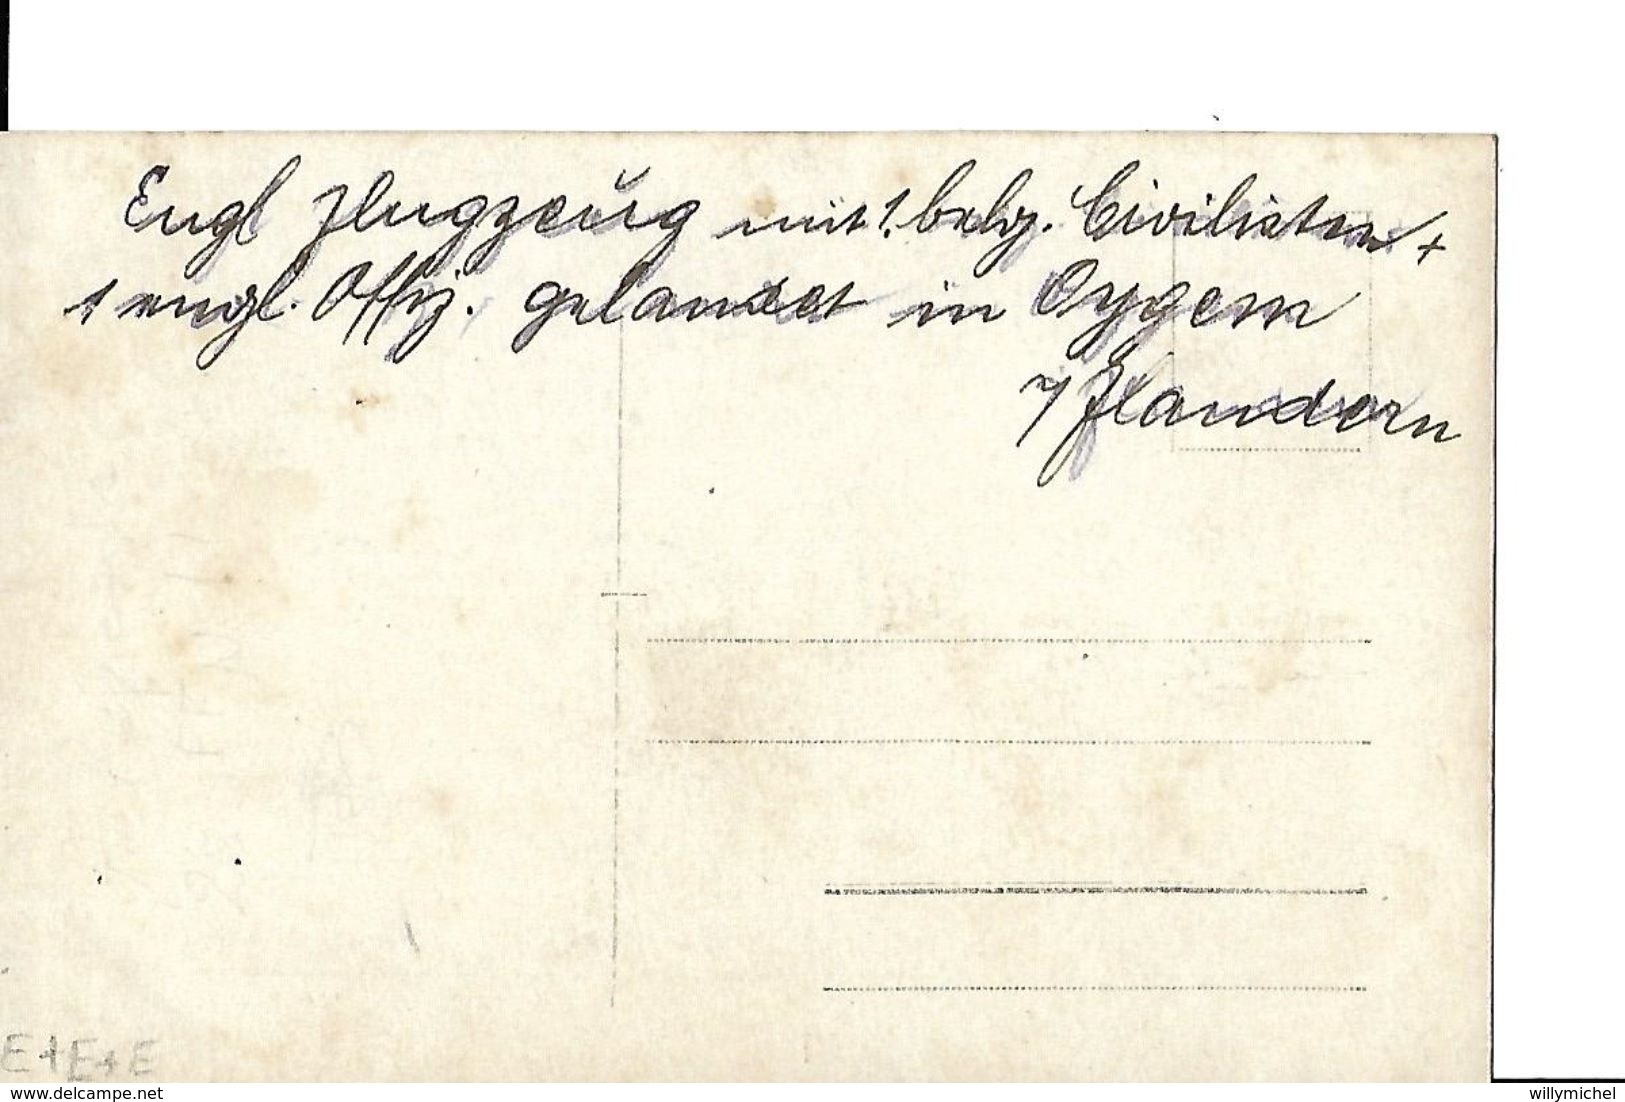 Engl Flugzeug mit 1. belg. Civilisten +
1 engl. Offiz. gelandet in Oygem
i/Flandern
E+E+E
www.delcampe.net
willymichel